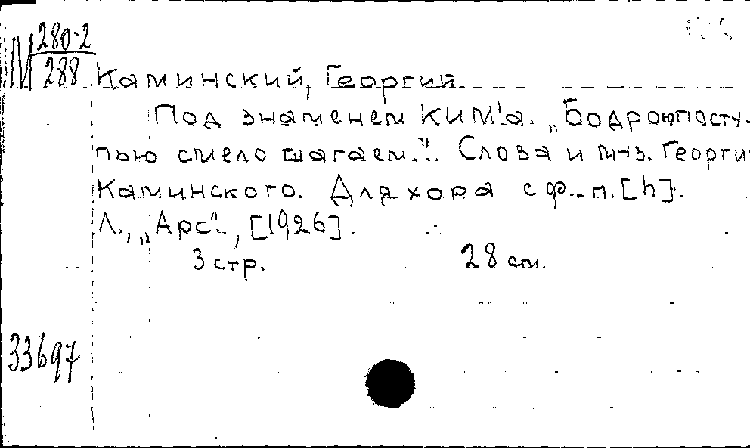 М 280-2
288
Каминский, Георгий.
Под знаменем КИМ'а. „Бодрой посту-
пью смело шагаем.." Слова и м-з. Георги
Каминского. Для хора с ф.-п. [h].
Л., „Арс", [1926].
3 стр. 28 см.
33697